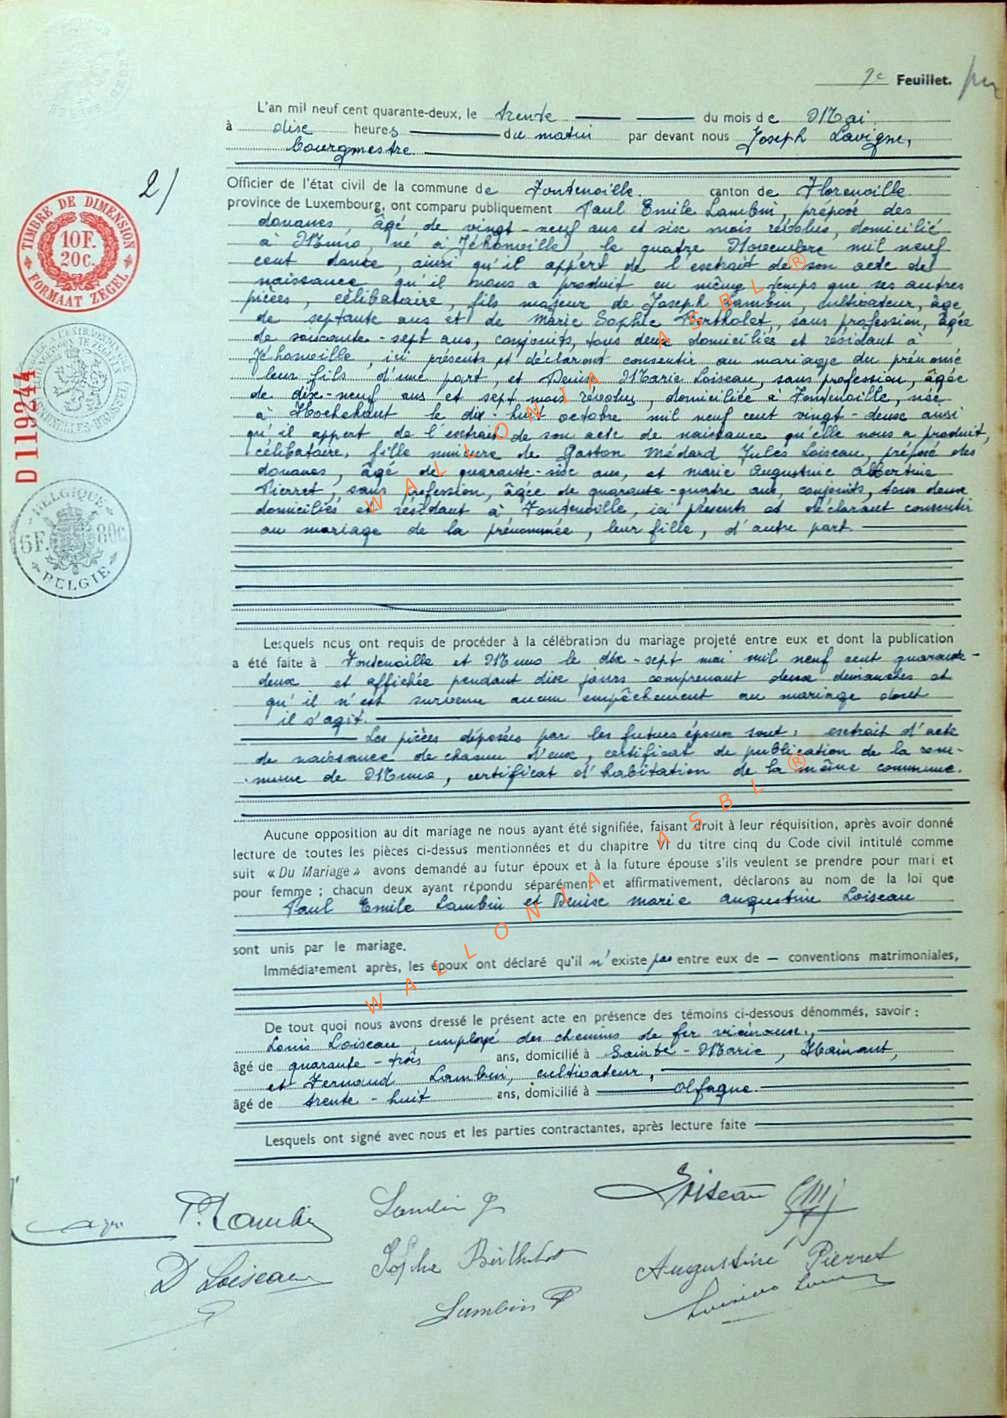 9e Feuillet.
L'an mil neuf cent quarante-deux, le trente du mois de Mai
à dix heures du matin par devant nous Joseph Lavigne,
bourgmestre
2/
Officier de l'état civil de la commune de Fontenoille canton de Florenville
province de Luxembourg, ont comparu publiquement Paul Emile Lambin, préposé des
douanes, âgé de vingt-neuf ans et six mois révolus, domicilié
à Muno, né à Jéhonville, le quatre Novembre mil neuf
cent douze, ainsi qu'il appert de l'extrait de son acte de
naissance qu'il nous a produit en même temps que ses autres
pièces, célibataire, fils majeur de Joseph Lambin, cultivateur, âgé
de septante ans et de Marie Sophie Bertholet, sans profession, âgée
de soixante-sept ans, conjoints, tous deux domiciliés et résidant à
Jéhonville, ici présents et déclarant consentir au mariage du prénommé
leur fils, d'une part, et Denise Marie Loiseau, sans profession, âgée
de dix-neuf ans et sept mois révolus, domiciliée à Fontenoille, née
à Rochehaut le dix-huit octobre mil neuf cent vingt-deux ainsi
qu'il appert de l'extrait de son acte de naissance qu'elle nous a produit,
célibataire, fille mineure de Gaston Médard Jules Loiseau, préposé des
douanes, âgé de quarante-six ans, et Marie Augustine Albertine
Pierret, sans profession, âgée de quarante-quatre ans, conjoints, tous deux
domiciliés et résidant à Fontenoille, ici présents et déclarant consentir
au mariage de la prénommée, leur fille, d'autre part
Lesquels nous ont requis de procéder à la célébration du mariage projeté entre eux et dont la publication
a été faite à Fontenoille et Muno le dix-sept mai mil neuf cent quarante-
deux et affichée pendant dix jours comprenant deux dimanches et
qu'il n'est survenu aucun empêchement au mariage dont
il s'agit.
Les pièces déposées par les futurs époux sont: extrait d'acte
de naissance de chacun d'eux, certificat de publication de la com-
mune de Muno, certificat d'habitation de la même commune.
Aucune opposition au dit mariage ne nous ayant été signifiée, faisant droit à leur réquisition, après avoir donné
lecture de toutes les pièces ci-dessus mentionnées et du chapitre VI du titre cinq du Code civil intitulé comme
suit « Du Mariage » avons demandé au futur époux et à la future épouse s'ils veulent se prendre pour mari et
pour femme ; chacun deux ayant répondu séparément et affirmativement, déclarons au nom de la loi que
Paul Emile Lambin et Denise Marie Augustine Loiseau
sont unis par le mariage.
Immédiatement après, les époux ont déclaré qu'il n'existe pas entre eux de — conventions matrimoniales,
De tout quoi nous avons dressé le présent acte en présence des témoins ci-dessous dénommés, savoir :
Louis Loiseau, employé des chemins de fer vicinaux,
âgé de quarante-trois ans, domicilié à Sainte-Marie, Hainaut,
et Fernand Lambin, cultivateur,
âgé de trente-huit ans, domicilié à Offagne
Lesquels ont signé avec nous et les parties contractantes, après lecture faite
P. Lambin
Lambin J
Loiseau
D Loiseau
Sophie Bertholet
Augustine Pierret
Lambin F
TIMBRE DE DIMENSION
10F.
20c.
FORMAAT ZEGEL
D 119244
BELGIQUE
5F. 80c
BELGIE
WALLONIA ASBL ®
WALLONIA ASBL ®